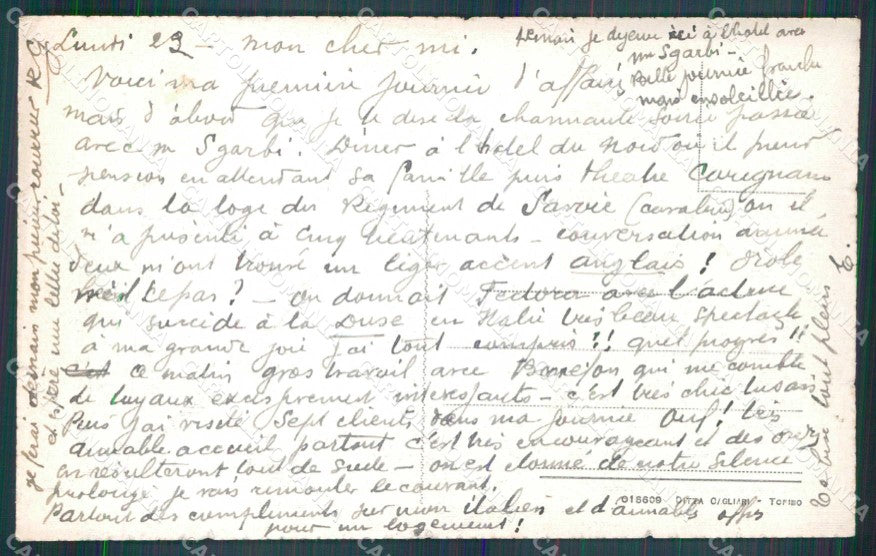 Lundi 23 - mon cher mi.
Voici ma première journée d'affaires
mais d'abord que je te dise la charmante soirée passée
avec m Sgarbi. Diner à l'hotel du Nord où il prend
pension en attendant sa famille puis théâtre Carignano
dans la loge du Régiment de Savoie (cavalerie) où il
m'a présenté à cinq lieutenants - conversation animée
deux m'ont trouvé un léger accent anglais! drole
n'est ce pas? - on donnait Fedora avec l'acteur
qui succède à la Duse en Italie très beau spectacle
à ma grande joie j'ai tout compris!! quel progrès!!
ce matin gros travail avec qui me comble
de tuyaux excessivement intéressants - c'est très chic tu sais
Puis j'ai visité sept clients dans ma journée Ouf! très
aimable accueil partout c'est très encourageant et des
en résulteront tout de suite - on est étonné de notre silence
prolongé je vais remonter le courant.
Partout des compliments sur mon italien et d'aimables offres
pour un logement!
Demain je dejeune ici à l'hotel avec
mr Sgarbi -
Belle journée fraiche
mais ensoleillée.
je ferai demain mon premier courrier RG
et espère une lettre de toi -
tout plein
018609 DITTA CAGLIARI - TORINO
CARTOLINANTICA